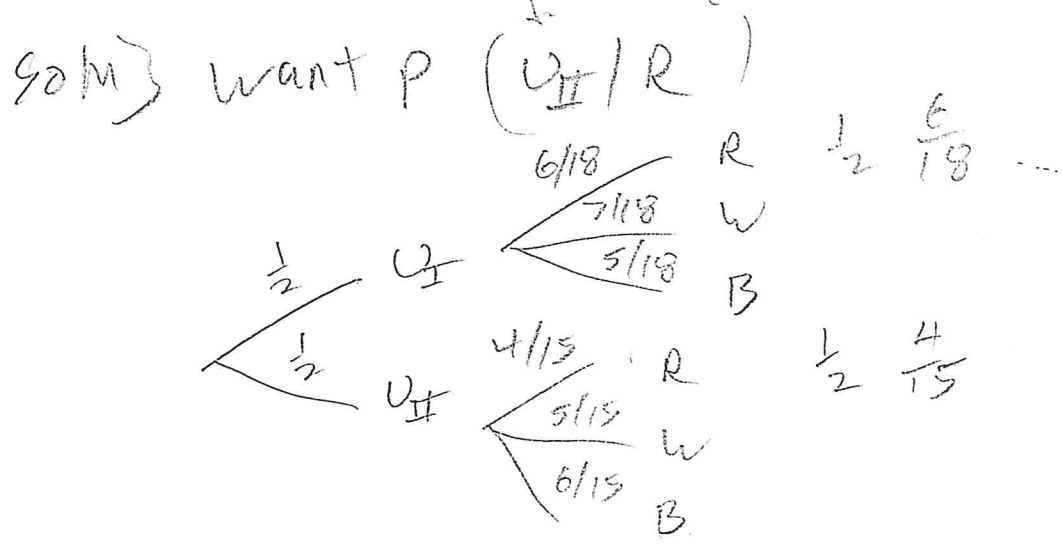 Soln} want P (U_II / R)
6/18 R 1/2 6/18 ...
7/18 W
1/2 U_I 5/18 B
1/2 U_II 4/15 R 1/2 4/15
5/15 W
6/15 B